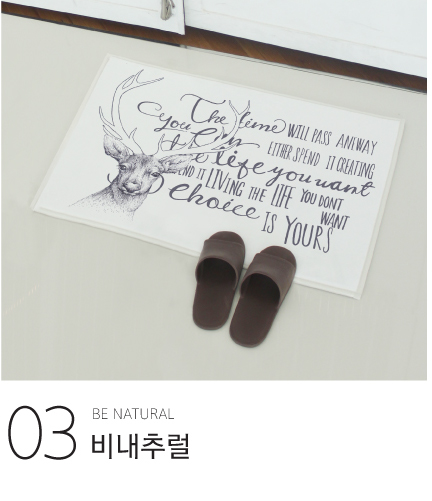 The time WILL PASS ANYWAY
You Can EITHER SPEND IT CREATING
the life you want
END IT LIVING THE LIFE YOU DON'T
WANT
choice IS YOURS
03
BE NATURAL
비내추럴